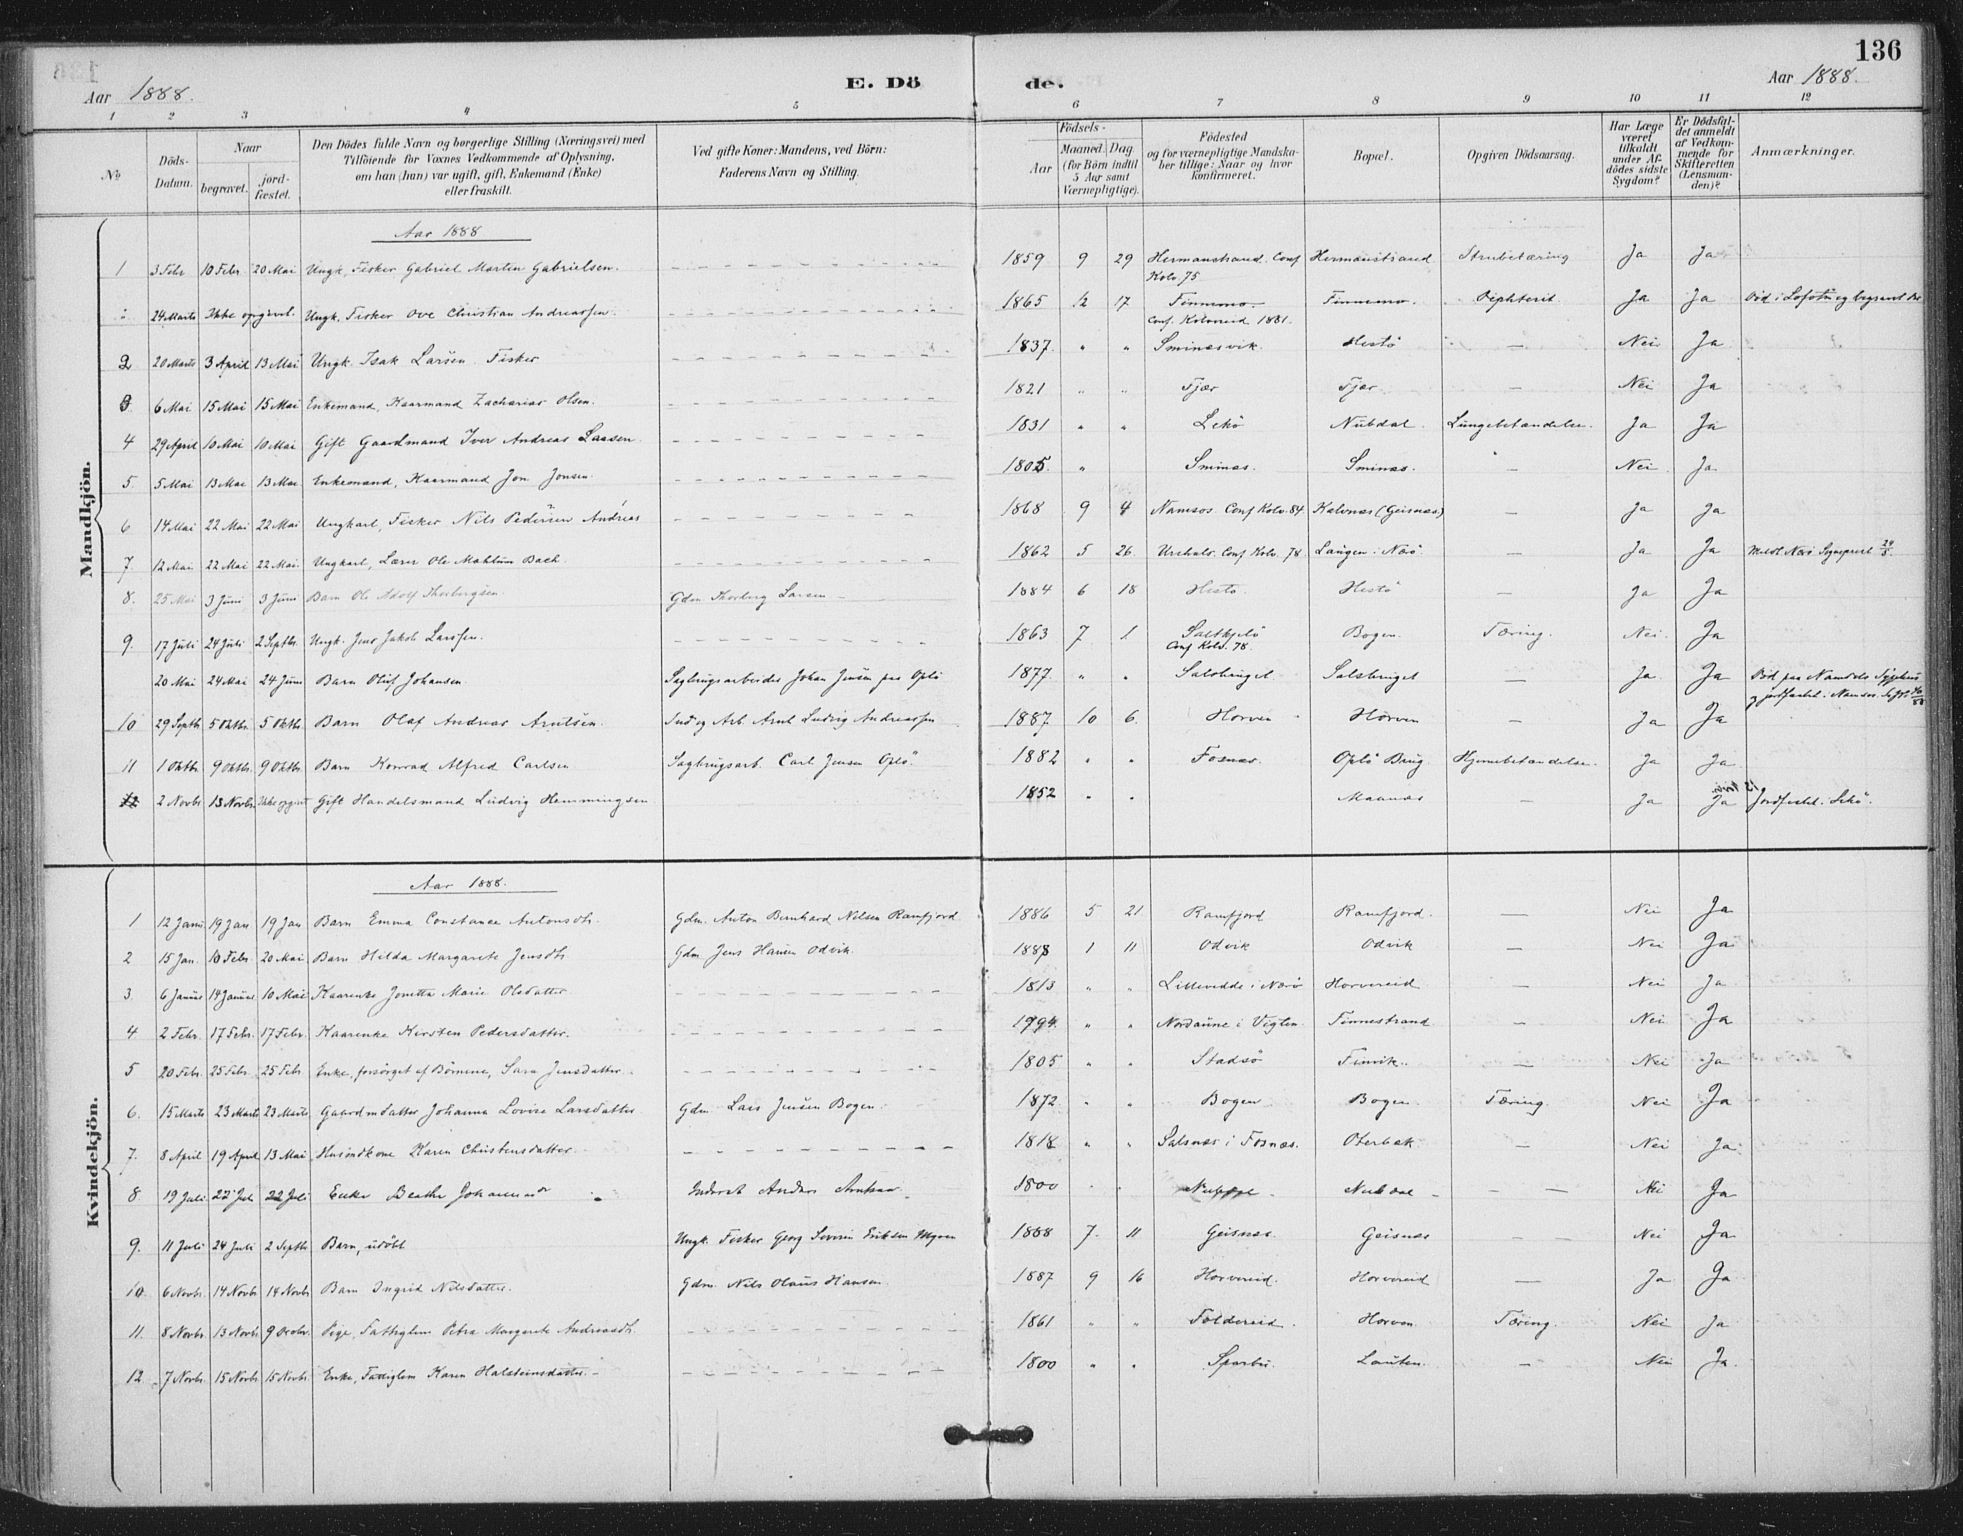 136
Aar 1888.
E. Döde.
Aar 1888.
1 2 3 4 5 6 7 8 9 10 11 12
No.
Döds-Datum.
Naar
begravet.
jordfæstet.
Den Dödes fulde Navn og borgerlige Stilling (Næringsvei) med
Tilföiende for Voxnes Vedkommende af Oplysning,
om han (hun) var ugift, gift, Enkemand (Enke)
eller fraskilt.
Ved gifte Koner: Mandens, ved Börn:
Faderens Navn og Stilling.
Födsels-
Aar
Maaned.
Dag
(for Börn indtil
5 Aar samt
Værnepligtige).
Födested
og for værnepligtige Mandska-
ber tillige: Naar og hvor
konfirmeret.
Bopæl.
Opgiven Dödsaarsag.
Har Læge
været
tilkaldt
under Af-
dödes sidste
Sygdom?
Er Dödsfal-
det anmeldt
af Vedkom-
mende for
Skifteretten
(Lensman-
den)?
Anmærkninger.
Mandkjön.
Aar 1888
1 3 Febr 10 Febr 20 Mai Ungk. Fisker Gabriel Martin Gabrielsen. 1859 9 29 Hermanstrand. Conf Kolv. 75 Hermanstrand Strubetæring Ja Ja
24 Marts Ikke opgivet. Ungk. Fisker Ove Christian Andreassen. 1865 12 17 Finnemo. Conf. Kolvereid 1881. Finnemo. Diphterit. Ja Ja Död i Lofoten og begravet
2 20 Marts 3 April 13 Mai Ungk. Isak Larsen Fisker 1837 " " Sminæsvik Hestö — Nei Ja
3. 6 Mai 15 Mai 15 Mai Enkemand, Kaarmand Zacharias Olsen. 1821 " " Fjær Fjær — Nei Ja
4 29 April 10 Mai 10 Mai Gift Gaardmand Iver Andreas Larsen 1831 " " Lekö Nubdal Lungebetændelse. Ja Ja
5. 5 Mai 13 Mai 13 Mai Enkemand, Kaarmand Jon Jonsen 1805 " Sminæs. Sminæs. — Nei Ja
6 14 Mai 22 Mai 22 Mai Ungkarl, Fisker Nils Pedersen Andreas 1868 9 4 Namsos Conf Kolv. 84 Kalvnæs (Geisnæs) — Ja Ja
7. 12 Mai 22 Mai 22 Mai Ungkarl, Lærer Ole Mahlum Bach 1862 5 26 Conf Kolv. 78 Laugen i Nærö — Ja Ja Meldt Nærö Sogneprest
8. 25 Mai 3 Juni 3 Juni Barn Ole Adolf Thorbergsen. Gdm. Thorberg Larsen 1884 6 18 Hestö Hestö — Ja Ja
9. 17 Juli 24 Juli 2 Septbr. Ungk. Jens Jakob Larssen. 1863 7 1 Saltkjelö Conf Kolv. 78. Bogen. Tæring. Nei Ja
20 Mai 24 Mai 24 Juni Barn Oluf Johansen Sagbrugsarbeider Johan Jensen paa Oplö 1877. " " Salsbruget Salsbruget — Ja Ja Död paa Namdals Sygehus
10 29 Septbr 5 Oktbr 5 Oktbr Barn Olaf Andreas Arntsen. Arb. Arnt Ludvig Andreassen 1887 10 6. Horven Horven — Ja Ja
11 1 Oktbr 9 Oktbr. 9 Oktbr. Barn Konrad Alfred Carlsen Sagbrugsarb. Carl Jensen Oplö. 1882 " " Fosnæs. Oplö Brug Hjernebetændelse. Ja Ja
12 2 Novbr 13 Novbr. Ikke opgivet Gift Handelsmand Ludvig Hemmingsen 1852 " " Maanæs — Ja Ja Jordfæstet i Lekö.
Kvindekjön.
Aar 1888.
1 12 Janu 19 Jan 19 Jan Barn Emma Constance Antonsdtr. Gdm. Anton Bernhard Nilsen Ramfjord 1886 5 21 Ramfjord Ramfjord. — Nei Ja
2 15 Jan. 10 Febr. 20 Mai Barn Hilda Margarete Jensdtr Gdm. Jens Hansen Odvik 1888 1 11 Odvik Odvik — Nei Ja
3. 6 Januar 14 Januar 10 Mai Kaarenke Jonetta Marie Olsdatter 1813 " " Lillevedde i Nærö Horvereid — Nei Ja
4 2 Febr. 17 Febr. 17 Febr. Kaarenke Kirsten Pedersdatter. 1794 " " Nordaune i Vigten Finnestrand — Nei Ja
5 20 Febr. 25 Febr. 25 Febr. Enke, forsörget af Börnene, Sara Jensdatter 1805 " " Stadsö Finvik. — Nei Ja
6. 15 Marts 23 Marts 23 Marts Gaardmdatter Johanna Lovise Larsdatter Gdm. Lars Jensen Bogen. 1872 " " Bogen Bogen Tæring. Nei Ja
7. 8 April 19 April 13 Mai Husmdkone Karen Christensdatter 1818 " " Salsnæs i Fosnæs. Oterbæk — Nei Ja
8 19 Juli 22 Juli 22 Juli Enke Beathe Johannesdr Inderst Anders 1800 " " Nubdal Nubdal — Nei Ja
9. 11 Juli 24 Juli 2 Septbr Barn, udöbt Ungk. Fisker Georg Severin Eriksen 1888 7 11 Geisnæs. Geisnæs — Nei Ja
10 6 Novbr. 14 Novbr 14 Novbr Barn Ingrid Nilsdatter. Gdm. Nils Olaus Hansen 1887 9 16 Horvereid. Horvereid — Ja Ja
11. 8 Novbr. 13 Novbr. 9 Decbr. Pige, Fattiglem Petra Margarete Andreasdtr 1861 " " Foldereid. Horven Tæring. Nei Ja
12 7 Novbr. 15 Novbr 15 Novbr. Enke, Fattiglem Karen Halsteinsdatter. 1800 " " Sparbu. Lauten. — Nei Ja